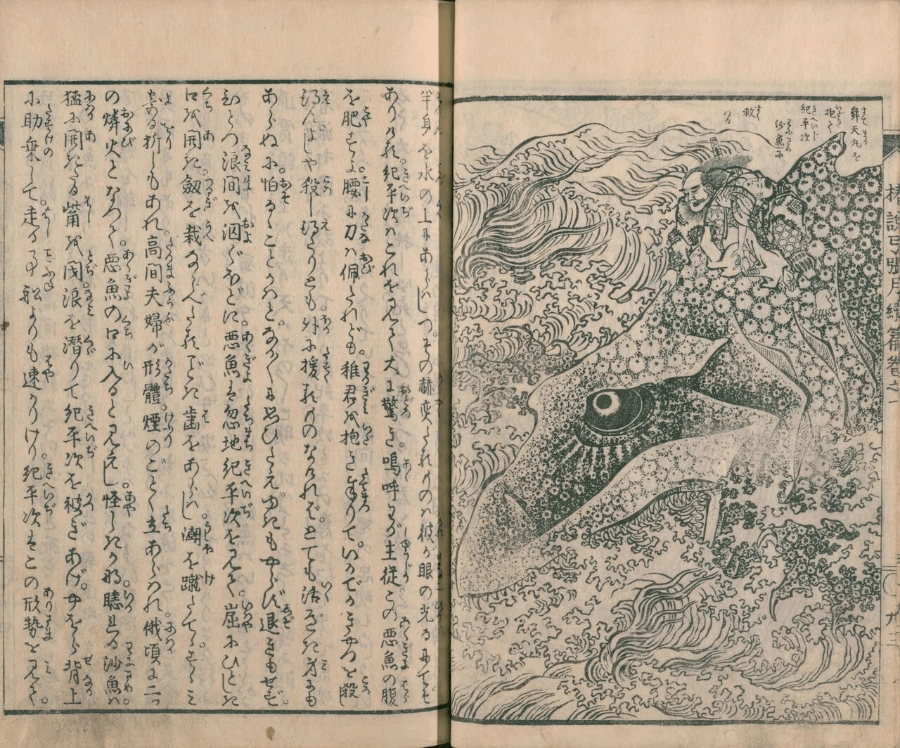 舜天丸を
抱きて
紀平次
沙魚に
救る
椿説弓張月續篇巻之一
半身を水の上にあらはしつ。その赫奕たりしものは彼が眼の光るにてぞ
ありける。紀平次はこれを見て大に驚き。嗚呼わが主従この悪魚の腹
を肥すよ。腰に刀は佩たれども。稚君を抱き奉りて。いかでかこれを殺し
得ん。よしや殺し得たりとも外に援るものなければ。とても活べき身にも
あらぬに怕るゝことかはと。なか〳〵に思ひたえ。ゆきもやらず。退きもせず。
ひとつ浪間に泅ぐほどに。悪魚は忽地紀平次を見て。崫にひとしき
口を開き劔を栽ならべたるごとき歯をあらはし。潮を蹴たてゝ。
折しもあれ高間夫婦が形體煙のごとく立あらはれ。俄頃に二ッ
の燐火となつて。悪魚の口に入ると見えし。怪しきかな沙魚は
猛に開きたる觜を閉。浪を潜りて紀平次を被ぎあげ。やをら背上
に助乗して走る事舩よりも速かりけり。紀平次はこの形勢を見て